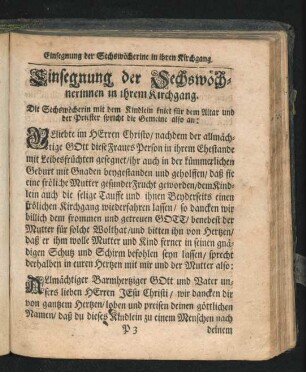 Einsegnung der Sechswöcherine in ihren Kirchgang.
Einsegnung der Sechswöch-
nerinnen in ihrem Kirchgang.
Die Sechswöcherin mit dem Kindlein kniet für dem Altar und
der Priester spricht die Gemeine also an:
Geliebte im HErren Christo/ nachdem der allmäch-
tige GOtt diese Frau es Person in ihrem Ehestande
mit Leibesfrüchten gesegnet/ ihr auch in der kümmerlichen
Geburt mit Gnaden beygestanden und geholffen/ daß sie
eine fröliche Mutter gesunder Frucht geworden/ dem Kind-
lein auch die selige Tauffe und ihnen Beyderseits einen
frölichen Kirchgang wiederfahren lassen/ so dancken wir
billich dem frommen und getreuen GOTT/ benebest der
Mutter für solche Wolthat/ und bitten ihn von Hertzen/
daß er ihm wolle Mutter und Kind ferner in seinen gnä-
digen Schutz und Schirm befohlen seyn lassen/ sprecht
derhalben in euren Hertzen mit mir und der Mutter also:
Allmächtiger Barmhertziger GOtt und Vater un-
sers lieben HErren JEsu Christi/ wir dancken dir
von gantzem Hertzen/ loben und preisen deinen göttlichen
Namen/ daß du dieses Kindlein zu einem Menschen nach
P 3 deinem